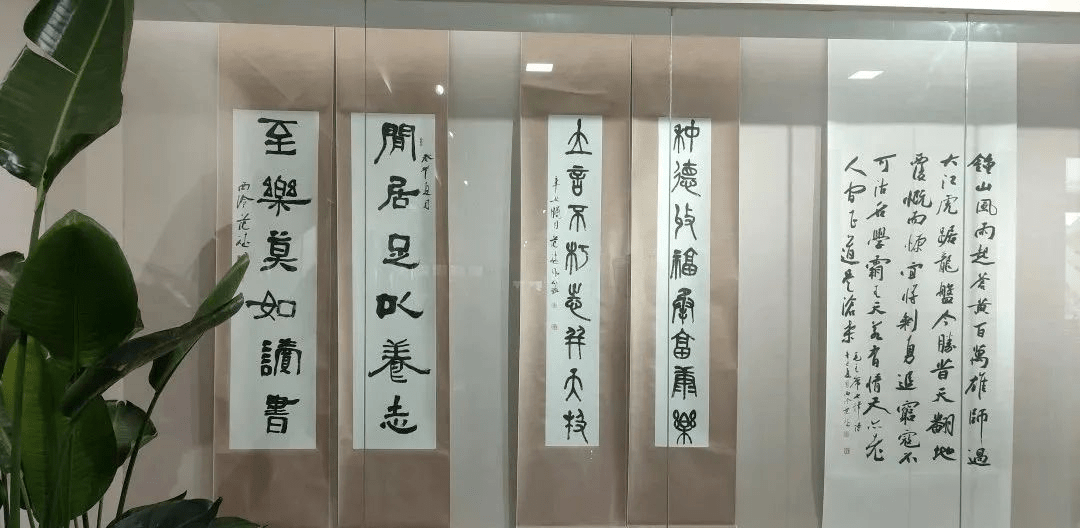 鍾山風雨起蒼黃百萬雄師過
大江虎踞龍盤今勝昔天翻地
覆慨而慷宜將剩勇追窮寇不
可沽名學霸王天若有情天亦老
人間正道是滄桑
毛主席七律詩
种德收福富康樂
立言不朽志并天
辛丑臘月范
閒居足以養志
癸卯夏月
至樂莫如讀書
西泠范